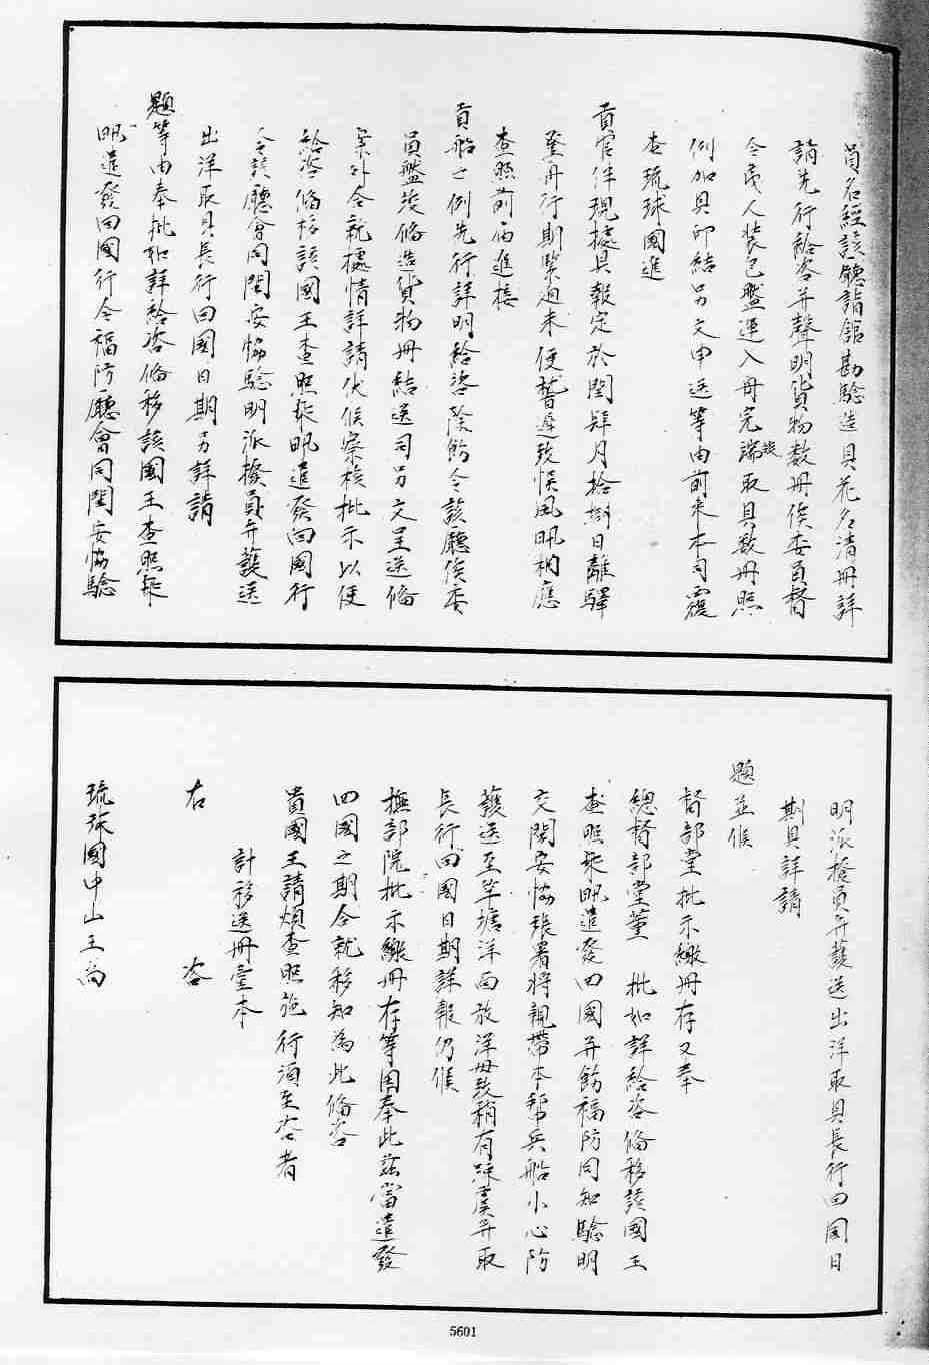 員名經該廳詣館勘驗造具花名清冊詳
請先行給咨并聲明貨物数冊俟委員督
令夷人装包盤運入舟完竣取具数冊照
例加具印結另文申送等由前來本司覆
查琉球國進
貢官伴現據具報定於閏肆月拾捌日離驛
登舟行期緊迫未便暫遲致悮風帆相應
查照前届進接
貢船之例先行詳明給咨除飭令該廳俟委
員盤验俻造貨物冊結送司另文呈送俻
案外合就據情詳請伏候察核批示以便
給咨俻移該國王查照乘帆遣發回國行
令該廳會同閩安協驗明派撥員弁護送
出洋取具長行回國日期另詳請
題等由奉批如詳給咨俻移該國王查照乘
帆遣發回國行令福防廳會同閩安協驗
明派撥員弁護送出洋取具長行回國日
期具詳請
題並候
督部堂批示繳冊存又奉
總督部堂董 批如詳給咨俻移該國王
查照乘帆遣發回國并飭福防同知驗明
交閩安協張署將親帶本幇兵船小心防
護送至竿塘洋面放洋毋致稍有踈虞并取
長行回國日期詳報仍候
撫部院批示繳冊存等因奉此兹當遣發
回國之期合就移知為此俻咨
貴國王請煩查照施行湏至咨者
計移送冊壹本
右 咨
琉球國中山王尚
5601